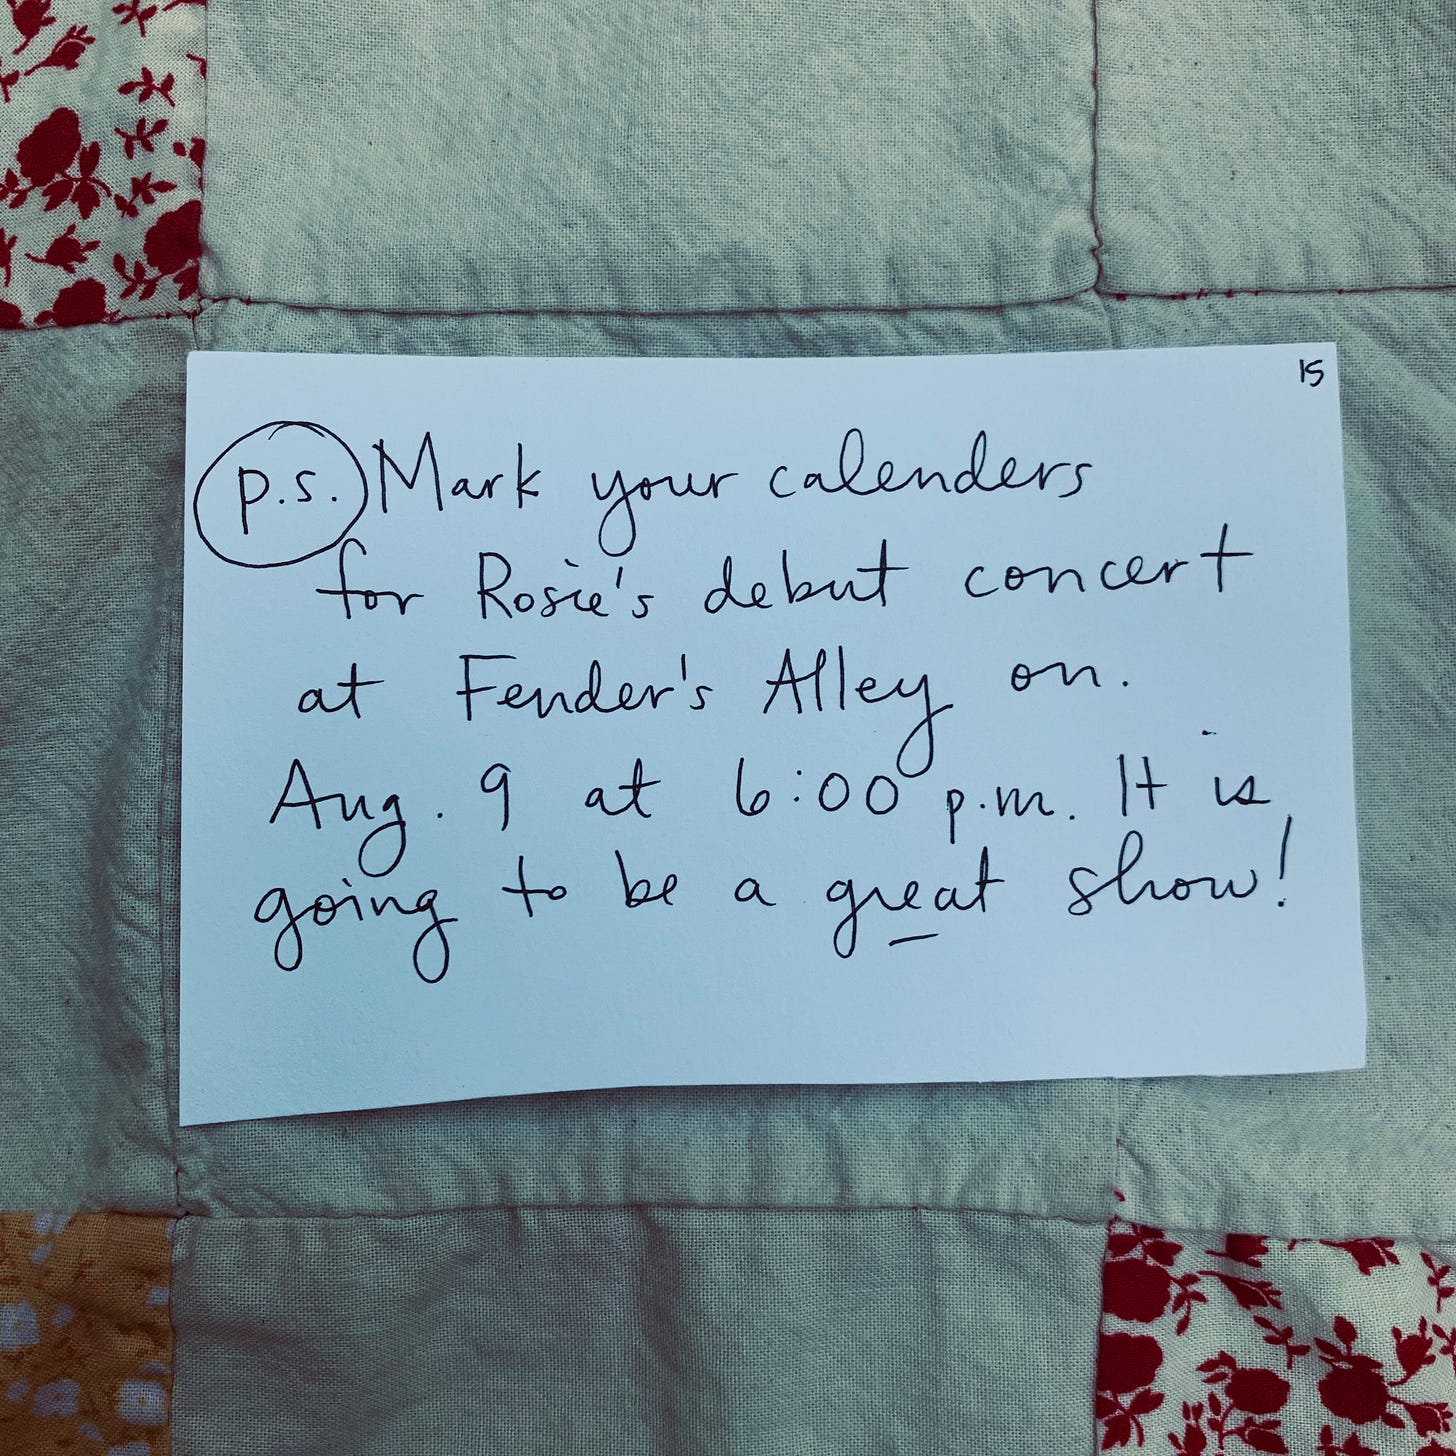 15
p.s. Mark your calenders
for Rosie's debut concert
at Fender's Alley on.
Aug. 9 at 6:00 p.m. It is
going to be a great show!